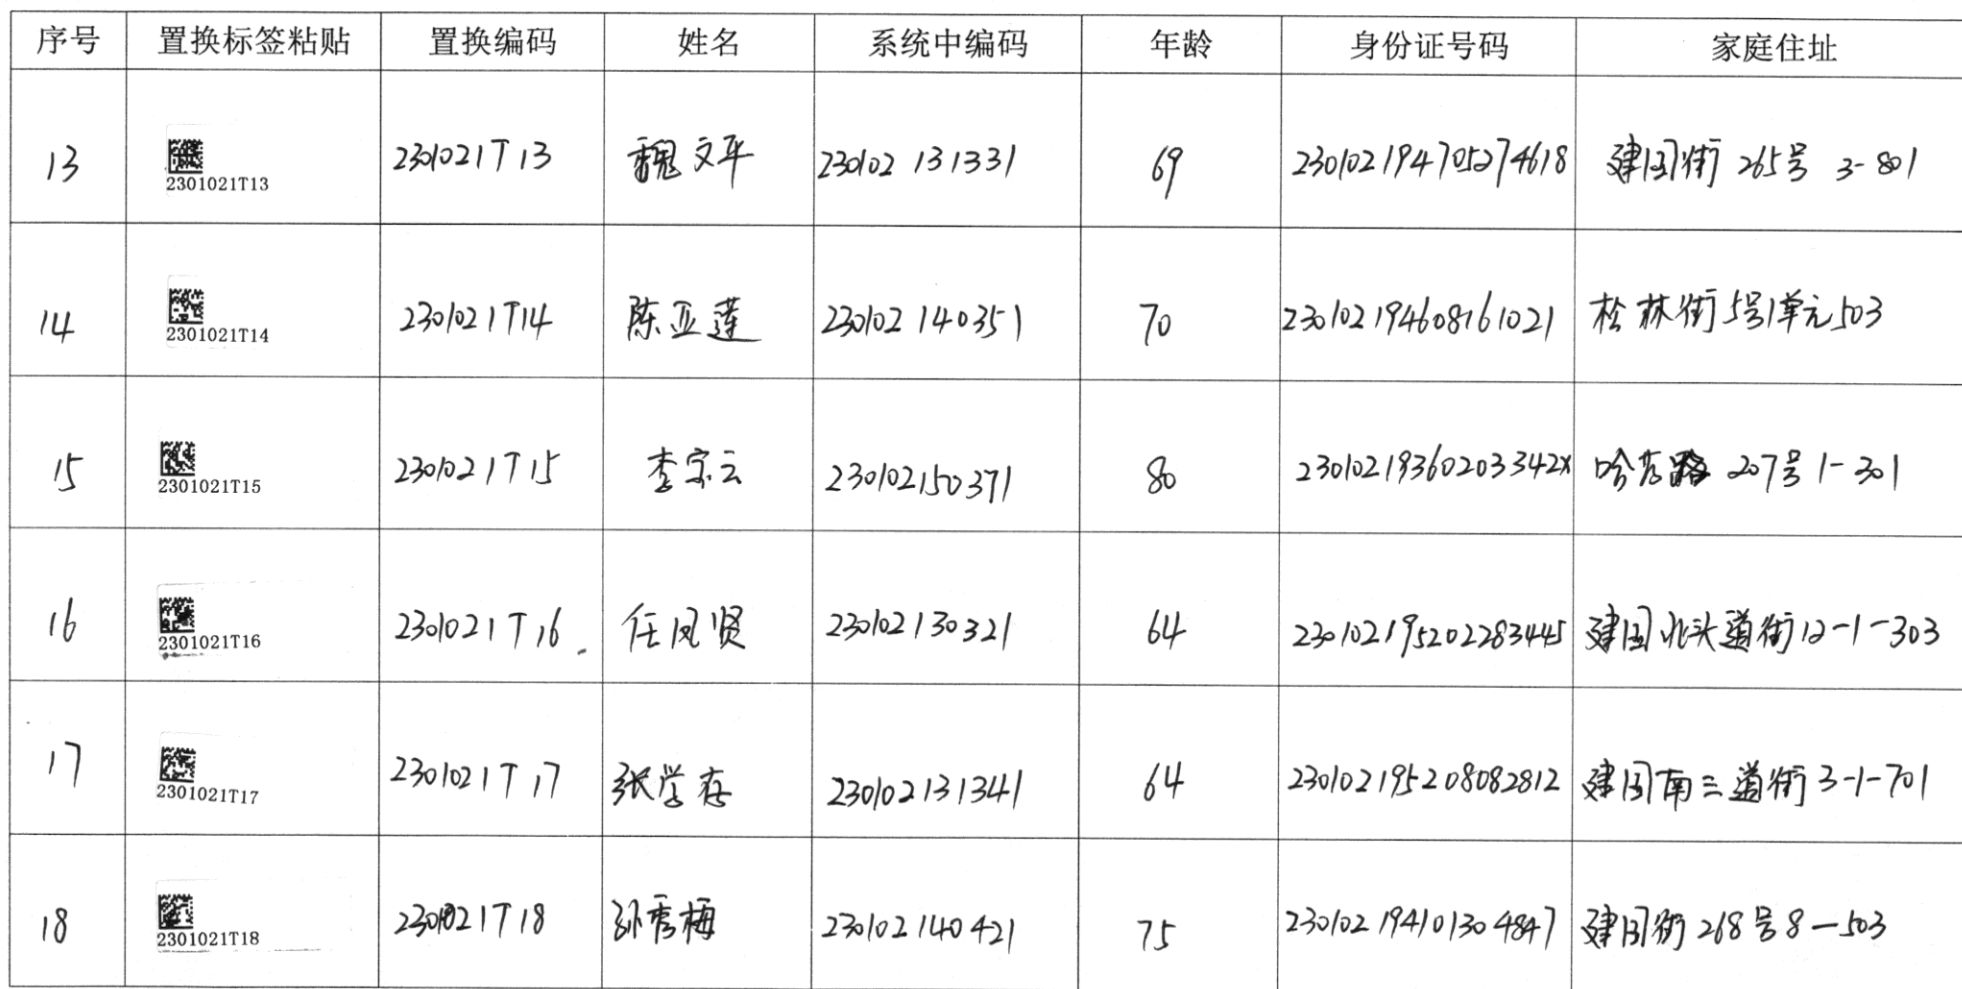 序号 置换标签粘贴 置换编码 姓名 系统中编码 年龄 身份证号码 家庭住址
13 2301021T13 2301021T13 魏文平 230102131331 69 230102194705274618 建国街265号 3-801
14 2301021T14 2301021T14 陈亚莲 230102140351 70 230102194608161021 松林街5号1单元503
15 2301021T15 2301021T15 李宗云 230102150371 80 23010219360203342X 哈药路207号1-301
16 2301021T16 2301021T16 任凤贤 230102130321 64 230102195202283445 建国北头道街12-1-303
17 2301021T17 2301021T17 张学存 230102131341 64 230102195208082812 建国南三道街3-1-701
18 2301021T18 2301021T18 孙秀梅 230102140421 75 230102194101304847 建国街268号8-503